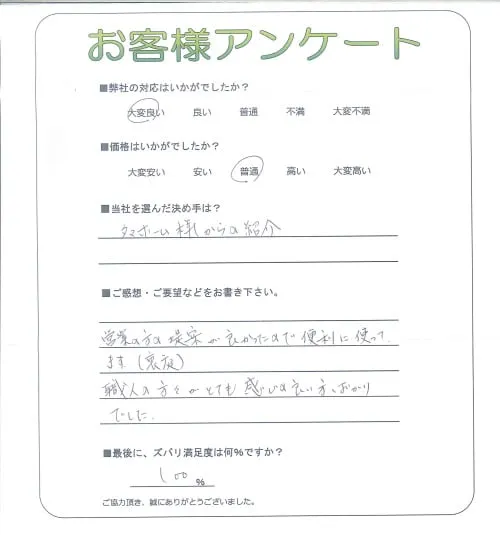 お客様アンケート
■弊社の対応はいかがでしたか？
大変良い 良い 普通 不満 大変不満
■価格はいかがでしたか？
大変安い 安い 普通 高い 大変高い
■当社を選んだ決め手は？
タマホーム様からの紹介
■ご感想・ご要望などをお書き下さい。
営業の方の提案が良かったので便利に使って
ます（裏庭）
職人の方々がとても感じの良い方ばかり
でした.
■最後に、ズバリ満足度は何%ですか？
100 %
ご協力頂き、誠にありがとうございました。